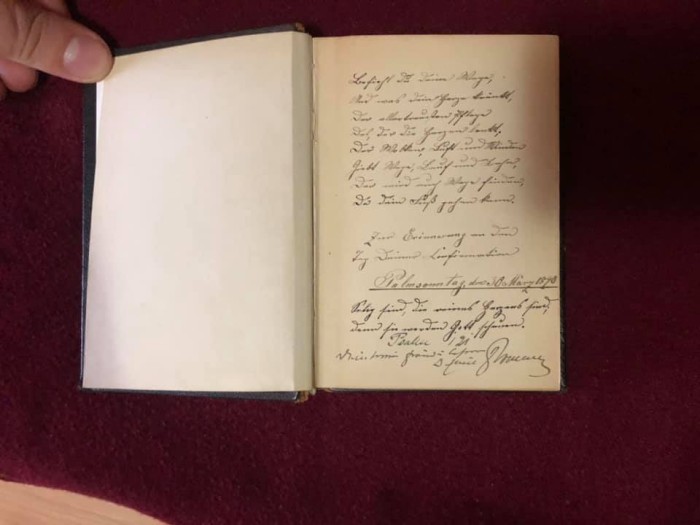 Befiehl Du deine Wege,
Und was dein Herze kränkt,
Der allertreusten Pflege
Deß, der die Herzen lenkt,
Der Wolken, Luft und Winden
Giebt Wege, Lauf und Bahn,
Der wird auch Wege finden,
Da dein Fuß gehen kann.
Zur Erinnerung an den
Tag Deiner Confirmation
Palmsonntag, den 30. März 1890
Selig sind, die reines Herzens sind,
denn sie werden Gott schauen.
Psalm 121